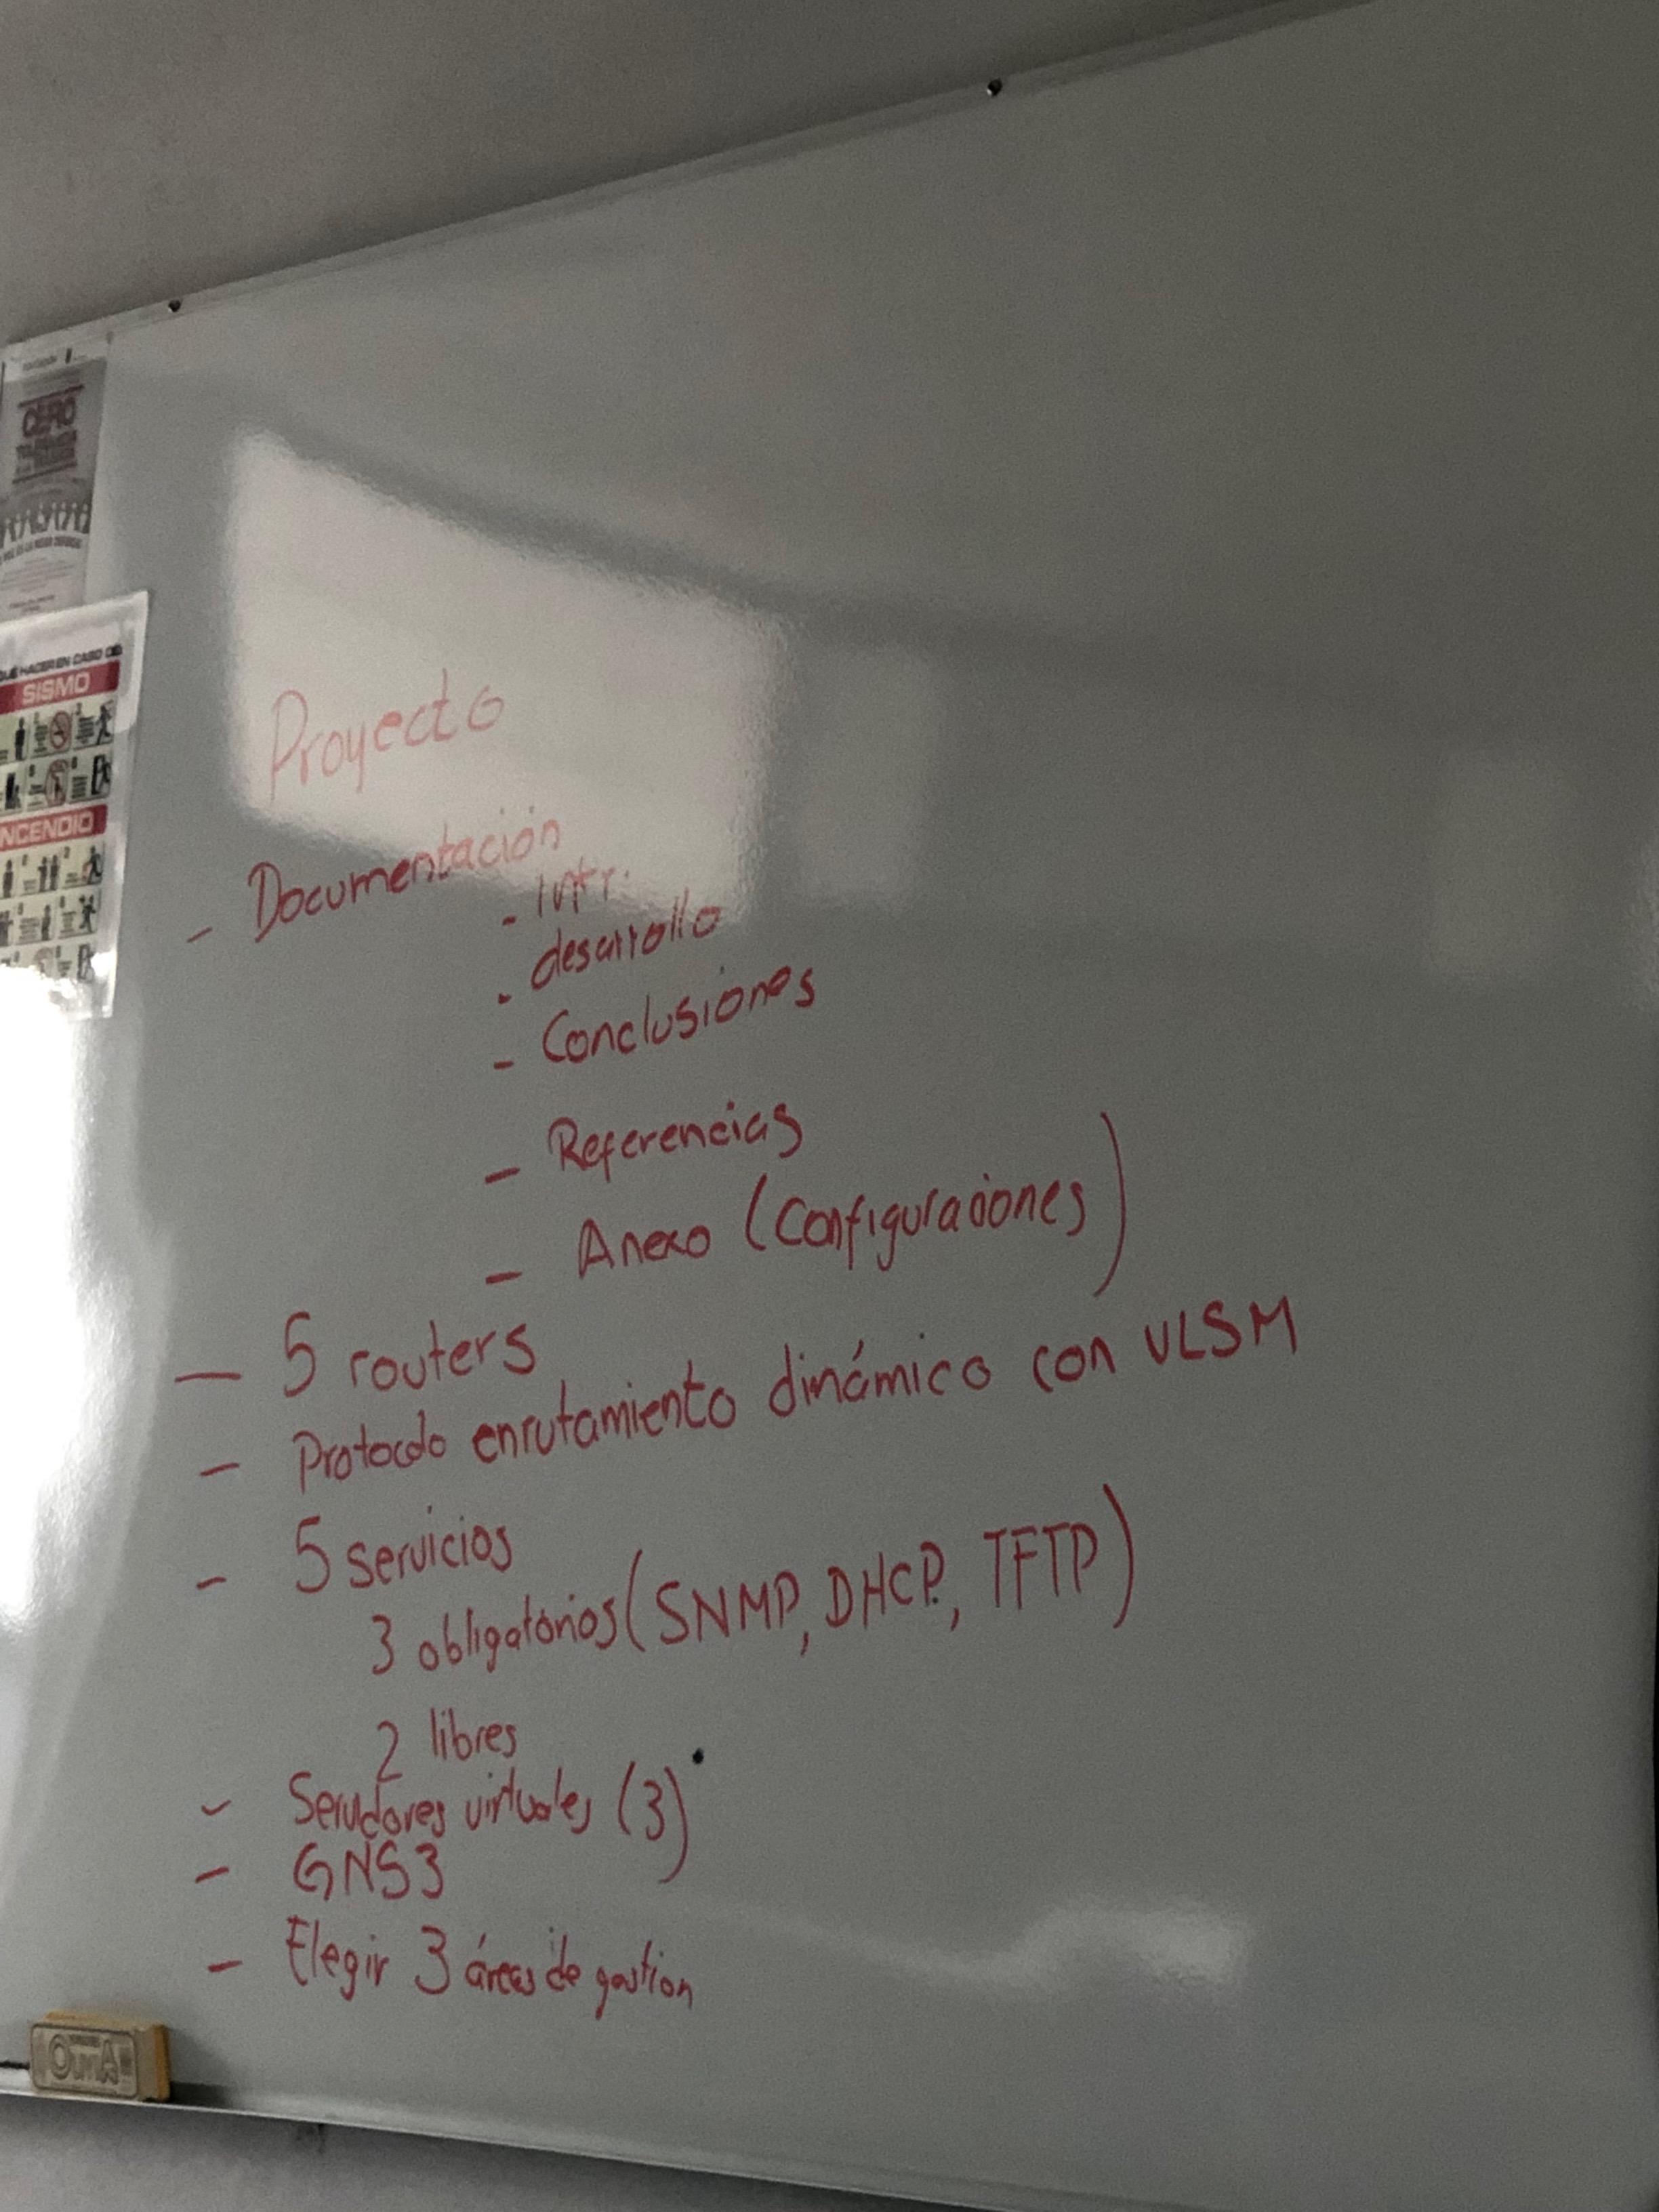 CERO
QUÉ HACER EN CASO DE:
SISMO
INCENDIO
Proyecto
- Documentación
- Intr.
- desarrollo
- Conclusiones
- Referencias
- Anexo (Configuraciones)
- 5 routers
- Protocolo enrutamiento dinámico con VLSM
- 5 servicios
3 obligatorios (SNMP, DHCP, TFTP)
2 libres
- Servidores virtuales (3)
- GNS3
- Elegir 3 áreas de gestion